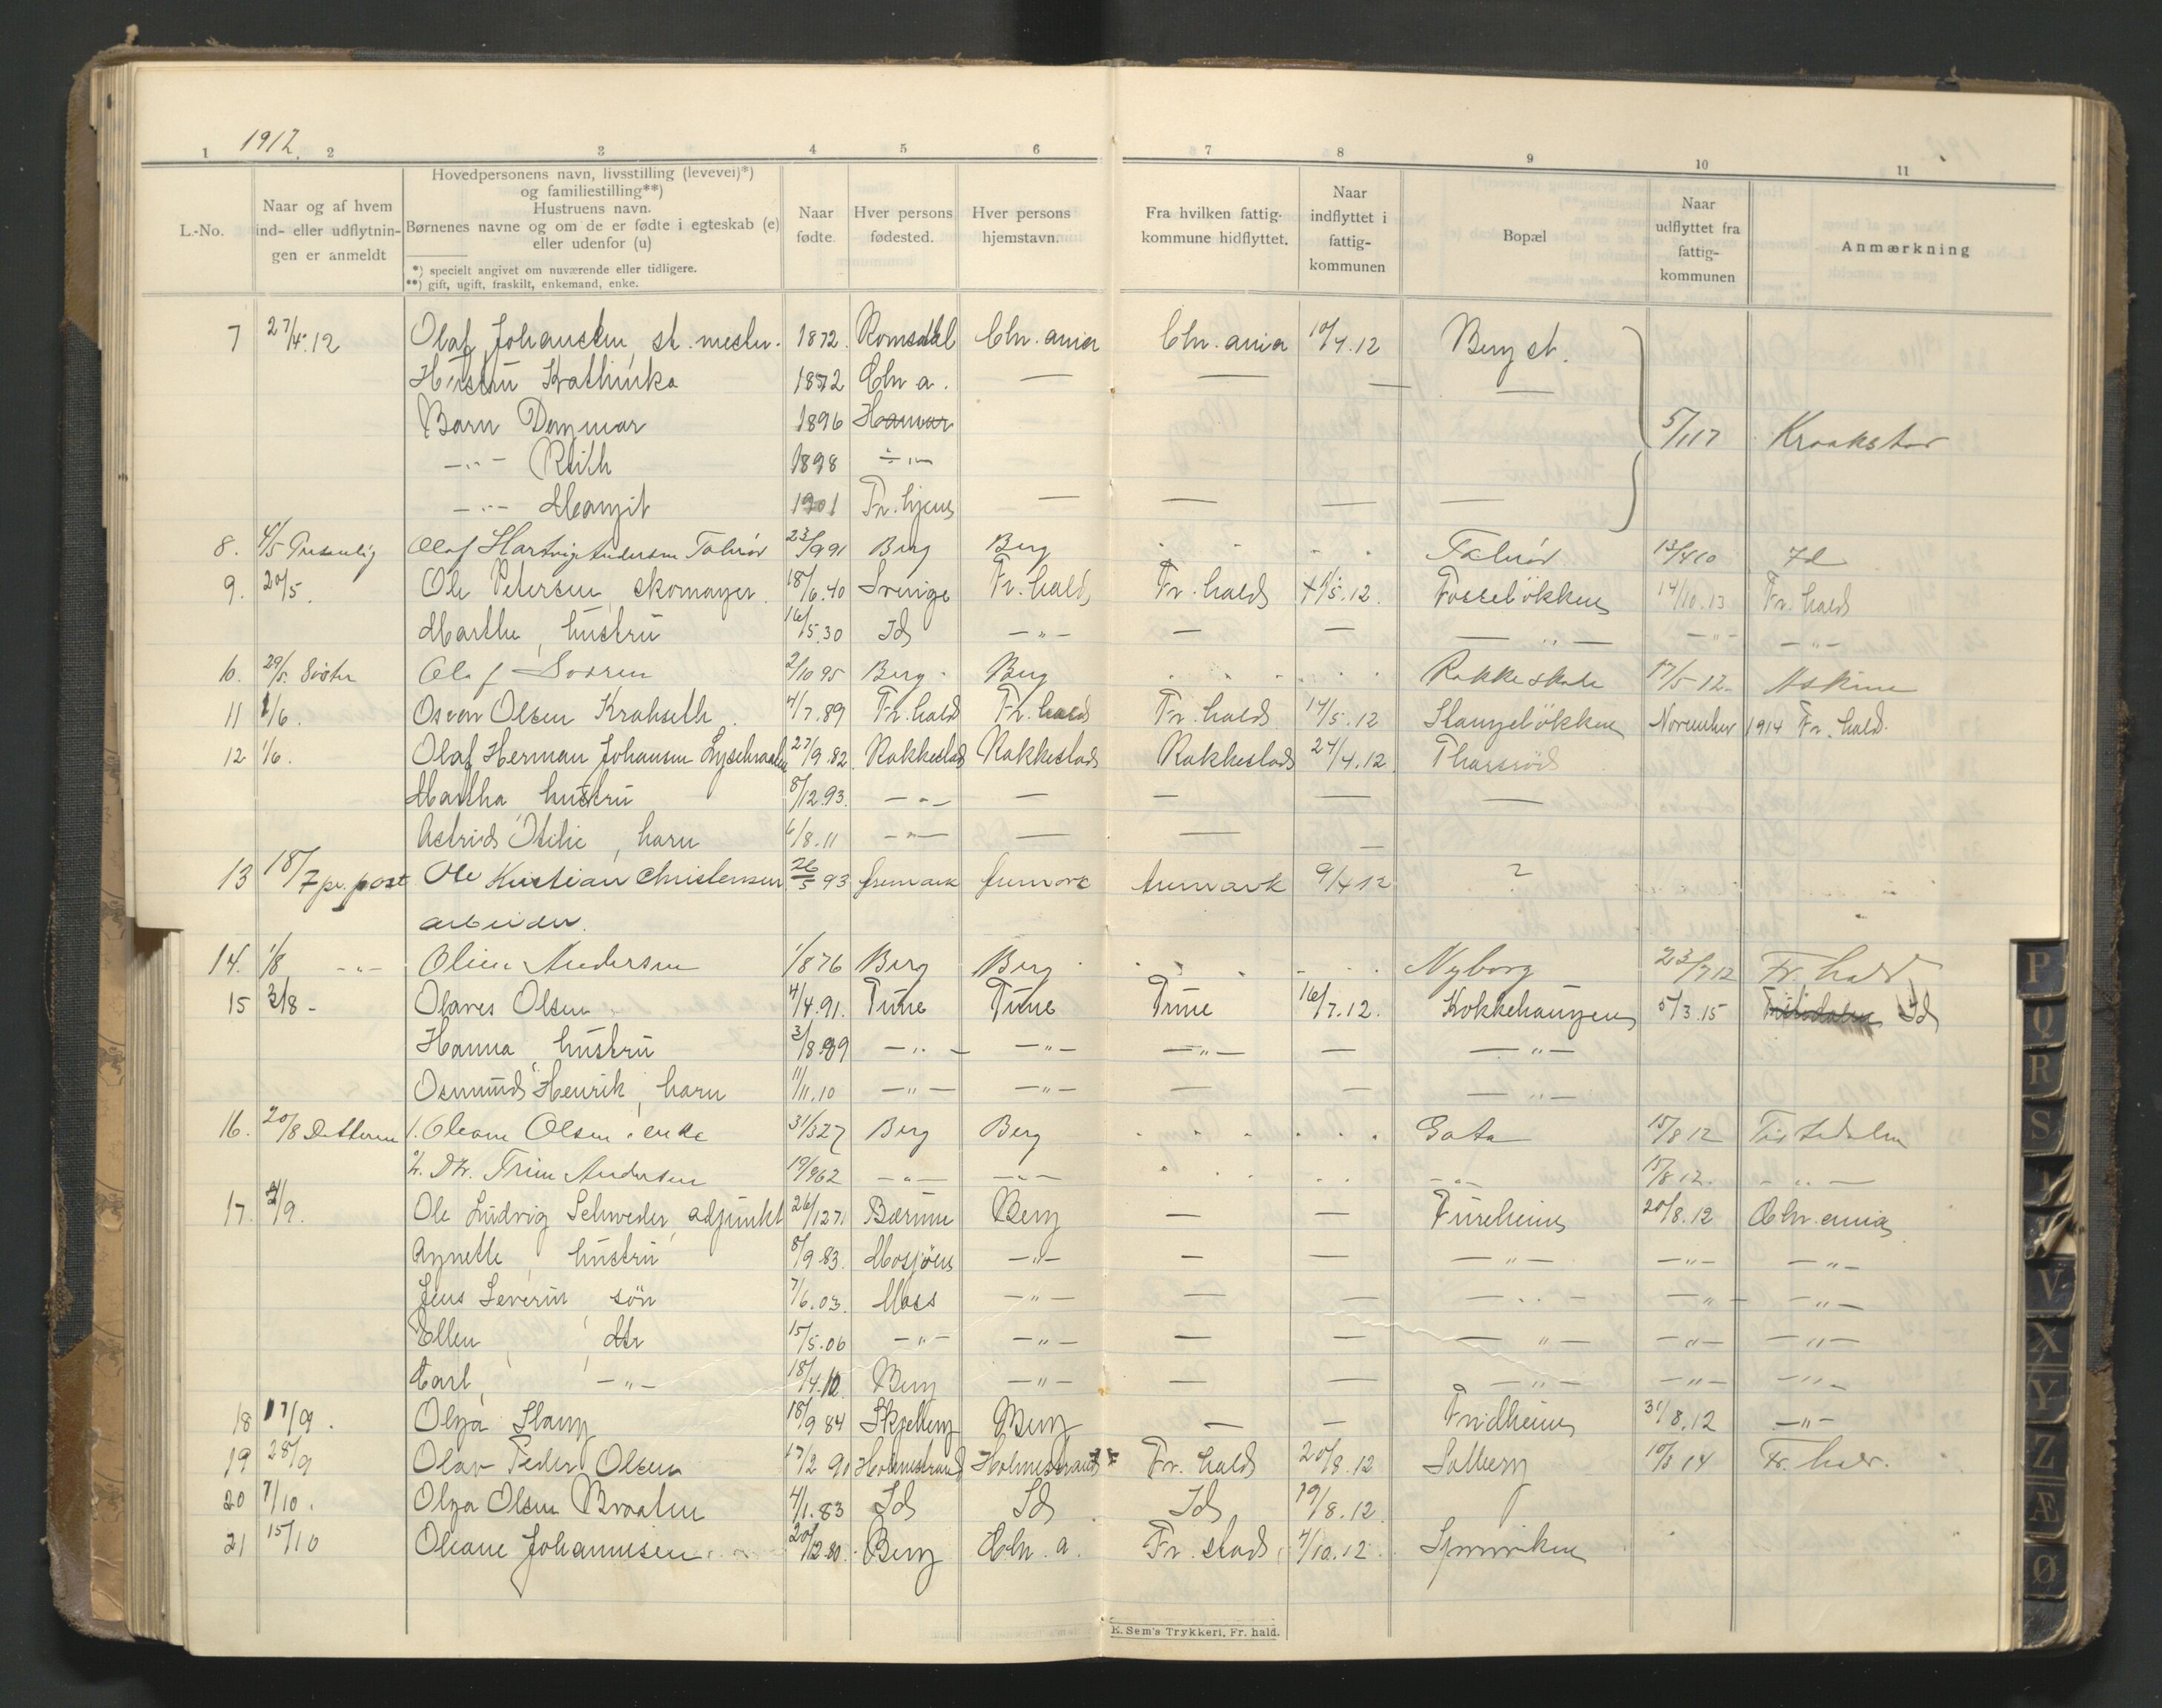 1912.
1 2 3 4 5 6 7 8 9 10 11
L.-No.
Naar og af hvem
ind- eller udflytnin-
gen er anmeldt
Hovedpersonens navn, livsstilling (levevei)*)
og familiestilling**)
Hustruens navn.
Børnenes navne og om de er fødte i egteskab (e)
eller udenfor (u)
*) specielt angivet om nuværende eller tidligere.
**) gift, ugift, fraskilt, enkemand, enke.
Naar
fødte.
Hver persons
fødested.
Hver persons
hjemstavn.
Fra hvilken fattig-
kommune hidflyttet.
Naar
indflyttet i
fattig-
kommunen
Bopæl
Naar
udflyttet fra
fattig-
kommunen
Anmærkning
7 27/4.12 Olaf Johansen, st. mester. 1872. Romsdal Chr. ania Chr. ania 10/4.12 Berg st.
Hustru Kathinka 1872 Chr a. — — — —
Barn Dagmar 1896 Hamar 5/1 17 Kraakstad
-"- Ruth 1898 -"-
-"- Margit 1901 Fr. hjem — — — —
8. 4/5 Personlig Olaf Hartvig Andersen 23/9 91 Berg Berg 13/4 10 Id
9. 20/5. Ole Petersen, skomager. 18/6.40 Sverige Fr. hald Fr. hald 1/5.12. Fosseløkken 14/10.13 Fr. hald
Marthe, hustru 16/5.30 Id -"- — — -"- -"- -"-
10. 29/5. Olaf 2/10 95 Berg Berg 17/5-12. Askim
11 1/6. Oscar Olsen Krabseth. 4/7.89 Fr. hald Fr. hald Fr. hald 14/5.12 Stangeløkken November 1914 Fr. hald.
12 1/6. Olaf Herman Johansen 27/9.82. Rakkestad Rakkestad Rakkestad 24/4.12
Martha, hustru 8/12.93. -"- — — — —
Astrid Otilie, barn 6/8.11 -"- — — —
13 18/7 pr. post Ole Kristian Christensen 26/5 93 Aremark Aremark Aremark 9/4 12 ?
arbeider.
14. 1/8 -"- Andersen 1/8 76 Berg Berg Nyborg 23/7 12 Fr. hald
15 3/8 - Olaves Olsen 4/4.91. Tune Tune Tune 16/7.12. Kokkehaugen 5/3.15 Id
Hanna, hustru 3/8 89 -"- -"- -"- — -"-
Osmund Henrik, barn 11/11.10 -"- -"- — — -"-
16. 20/8 Datteren 1. Oleane Olsen, enke 31/3 27 Berg Berg Gata 15/8 12 Tistedalen
2. Dtr. Trine Andersen 19/9 62 -"- -"- -"- 15/8 12. -"-
17. 2/9. Ole Ludvig Schweder, adjunkt 26/12 71 Bærum Berg — — Fureheim 20/8.12 Chr. ania
Agnethe, hustru 8/9.83. Mosjøen -"- — — -"- -"- -"-
Jens Severin, søn 7/6.03. Moss -"- — — -"- -"- -"-
Ellen, dtr 15/5.06 -"- -"- — — -"- -"- -"-
Carl, -"- 18/4.10. Berg -"- — — -"- -"- -"-
18 17/9. Olga Stang 18/9 84 Skjeberg Berg — — Fridheim 31/8.12 -"-
19 28/9 Olav Peder Olsen 17/2 90 Holmestrand Holmestrand Fr. hald 20/8.12 Solberg 10/3 14 Fr. hald.
20 7/10. Olga Olsen Braaten 4/1.83 Id Id Id 19/8.12.
21 15/10 Oleane Johannesen 20/12.80. Berg Chr. a. Fr. stad 4/10.12. Sponviken
E. Sem's Trykkeri, Fr. hald.
P
Q
R
S
V
X
Y
Z
Æ
Ø